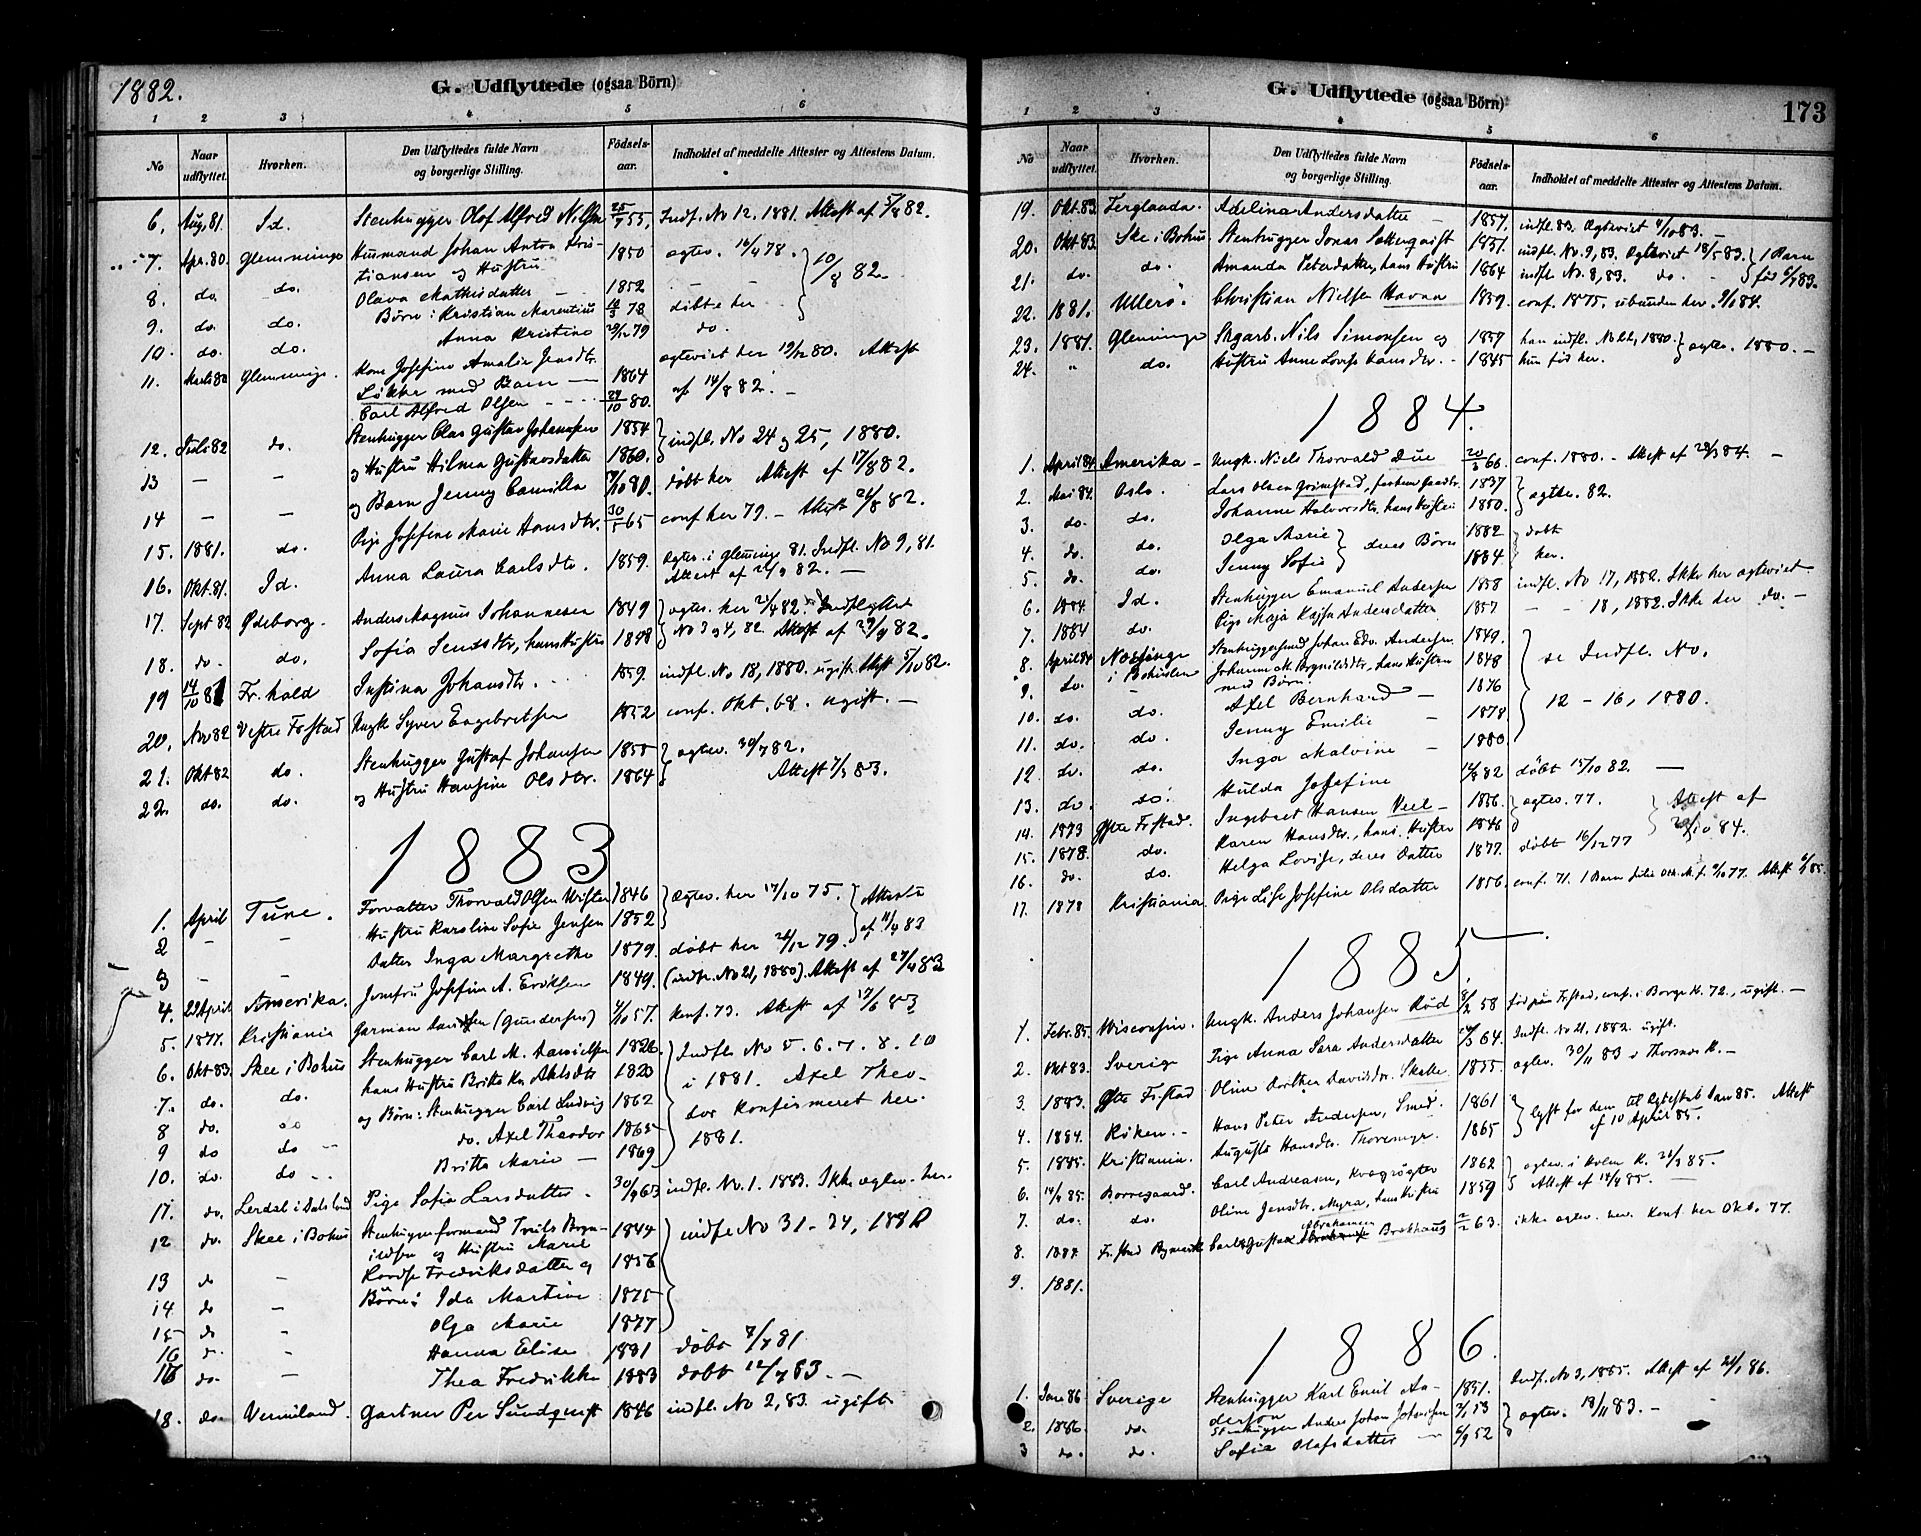 1882.
G. Udflyttede (ogsaa Börn)
1 2 3 4 5 6
No Naar udflyttet. Hvorhen. Den Udflyttedes fulde Navn og borgerlige Stilling. Födsels-aar. Indholdet af meddelte Attester og Attestens Datum.
6. Aug. 81. Id. Stenhugger Olof Alfred Nilsen 25/7 55, Indfl. No 12. 1881. Attest af 5/8 82.
7. Apr. 80. Glemminge Husmand Johan Anton Kris- 1850 agtev. 16/4 78. } 10/8 82.
tiansen og Hustru
8. do. do. Olava Mathisdatter 1852
9. do. do. Børn: Kristian Marentius 78 döbte her
10. do. do. Anna Kristine 29/12 79 do.
11. Marts 80 Glemminge. Kone Josefine Amalie Jensdtr. agteviet her 19/12 80. Attest
Løkke med Barn — 1864 af 14/8 82. —
Carl Alfred Olsen 24/10 80.
12. Juli 82 do. Stenhugger Claes Gustav Johansson 1854 } indfl. No 24 og 25, 1880.
13 — — og Hustru Hilma Gustavsdatter 1860.
14 — — og Barn Jenny Camilla 80. döbt her Attest af 17/8 82.
15. 1881. do. Pige Josefine Marie Hansdtr. 30/5 65 conf. her 79. — Attest 24/8 82.
16. Okt. 81. Id. Anna Laura Carlsdtr. 1859. Agtev. i Glemminge 81. Indfl. No 9, 81.
Attest af 21/9 82. —
17. Sept 82 Ødeborg. Anders Magnus Johannesen 1849 } agtev. her 82. Indflyttet
18. do. do. Sofia Jensdtr, hans Hustru 1848 No 3 og 4, 82. Attest af 29/9 82.
19 14/10 81 Fr. hald Justina Johansdtr. 1859 indfl. No 18, 1880. ugift. Attest 5/10 82.
20. Nov 82 Vestre Frstad Ungk. Syver Engebretsen 1852 conf. Okt. 68. ugift. —
21. Okt 82 do. Stenhugger Gustaf Johansen 1858 } agtev. 30/7 82.
22. do. do. og Hustru Hansine Olsdtr. 1864 Attest 7/3 83.
1883
1. April Tune. Forvalter Thorvald Olsen 1846 } Agtev. her 17/10 75. } Attester
2 — — Hustru Karoline Sofie Jensen 1852 af 11/4 83
3 — — Datter Inga Margrethe 1879. döbt her 26/12 79.
4. 22 April Amerika. Jomfru Josefine A. Eriksen 1849. (indfl. No 21, 1880). Attest af 27/4 83
5. 1877. Kristiania German Danielsen (Gundersen) 4/10 57. Konf. 73. Attest af 17/6 83
6. Okt 83. Skee i Bohus Stenhugger Carl M. Danielsen 1826. } Indfl. No 5. 6. 7. 8. 10
7. do. do. hans Hustru Britta Ka. Akselsdtr 1820 i 1881. Axel Theo-
8 do. do og Børn: Stenhugger Carl Ludvig 1862 dor Konfirmeret her.
9 do do do. Axel Theodor 1865 1881.
10. do. do Britta Marie — 1869
11. do. Lerdal i Dalsland Pige Sofia Larsdatter. 30/9 63 indfl. No. 1. 1883. Ikke agtev. her.
12 do. Skee i Bohus Stenhuggerformand Troils Bryn- 1844 } indfl. No 31-34, 188
ildsen og Hustru Marie
13 do — Fredriksdatter og 1856
14 do — Børn: Ida Martine 1875
15 do — Olga Marie 1877
16 do — Hanna Elise 1881 döbt 7/7 81.
17 do. — Thea Fredrikke 1883 döbt 12/7 83. —
18. do. Vermland. Gartner Per Sundquist 1846 indfl. No 2, 83. ugift
G. Udflyttede (ogsaa Börn)
173
1 2 3 4 5 6
No Naar udflyttet. Hvorhen. Den Udflyttedes fulde Navn og borgerlige Stilling. Födsels-aar. Indholdet af meddelte Attester og Attestens Datum.
19. Okt. 83. Ferglanda. Adelina Andersdatter — 1857. indfl. 83. Agteviet 4/10 83. —
20. Okt 83. Ske i Bohus. Stenhugger Jonas Sätterqvist 1851. indfl. No. 9, 83. Agteviet 18/5 83. } 1 Barn
21. do. do. Amanda Petersdatter, hans Hustru 1864 indfl. No. 8, 83. do. — født 83.
22. 1881. Ullerø. Christian Nielsen Havna 1859. conf. 1875. ubunden her. 9/1 84.
23. 1881. Glemminge Skgarb. Nils Simonsen og 1859 han indfl. No 26, 1880. } agtev. 1880. —
24. " do. Hustru Anne Lovise Hansdtr. 1845 hun fød her.
1884.
1. April 84 Amerika — Ungk. Niels Thorvald Due 20/3 66. conf. 1880. — Attest af 28/3 84. —
2. Mai 84. Oslo. Lars Olsen Grimstad, 1837 } agtev. 82.
3. do. do. Johanne Halvorsdtr. hans Hustru 1850.
4. do. do. Olga Marie } deres Børn 1882 } döbt
5. do. do. Jenny Sofie 1884 her.
6. 1884 Id. Stenhugger Emanuel Andersen 1858 indfl. No 17, 1882. Ikke her agteviet.
7. 1884 do. Pige Maja Kajsa Andersdatter 1857 — — 18, 1882. Ikke her do. —
8. April 84 i Bohuslen Stenhuggersmed Johan Edv. Andersen 1849. } se Indfl. No.
9. do. — Johanna M. Brynildsdtr, hans Hustru 1848
med Børn:
10. do. do. Axel Bernhard — 1876 12 — 16, 1880.
11. do. do. Jenny Emilie — 1878
12. do. do. Inga Malvine — 1880
13. do. do. Hulda Josefine 82 döbt 15/10 82. —
14. 1873 Østre Frstad. Ingebret Hansen Veel — 1856. } agtev. 77. } Attest af
15. 1878. do. Karen Hansdtr., hans Hustru 1846 10 84.
16. do. do. Helga Lovise, deres Datter 1877. döbt 16/12 77
17. 1878 Kristiania. Pige Lise Josefine Olsdatter 1856. conf. 71. 1 Barn
1885.
1. Febr. 85. Wisconsin. Ungk. Anders Johansen Rød 8/2 58 fød paa Frstad, conf. i Borge K. 72., ugift. —
2. Okt 83. Sverige Pige Anna Sara Andersdatter 64. Indfl. No 21, 1882. ugift.
3. 1883. Østre Frstad Oline Dorthea Davidsdtr. Skalle 1855. agtev. 30/11 83 i Thorsnes K. —
4. 1884. Røken. — Hans Peter Andersen, Smed. 1861 } lyst for dem til Egteskab Jan 85. Attest
5. 1885. Kristiania. Augusta Hansdtr. Thorsmyr. 1865 af 10 April 85.
6. 14/4 85. Borregaard. Carl Andreasen, Kvægrøgter 1862 } agtev. i Holm K. 85.
7. do. do. Oline Jensdtr. Myra, hans Hustru 1859 Attest af 14/4 85. —
8. 1884. Frstad Bymark Carl Gustav Abrahamsen Brekhaug 2/2 63. ikke agtev. her. Konf. her Okt. 77.
9. 1881.
1886.
1. Jan 86 Sverige Stenhugger Karl Emil An- 1851. Indfl. No 3, 1885. Attest af 21/1 86.
derson
2. 1886. do. Stenhugger Anders Johan Johansen 53 } agtev. 18/11 83. —
3 do. do. Sofia Olafsdatter — 6/9 52